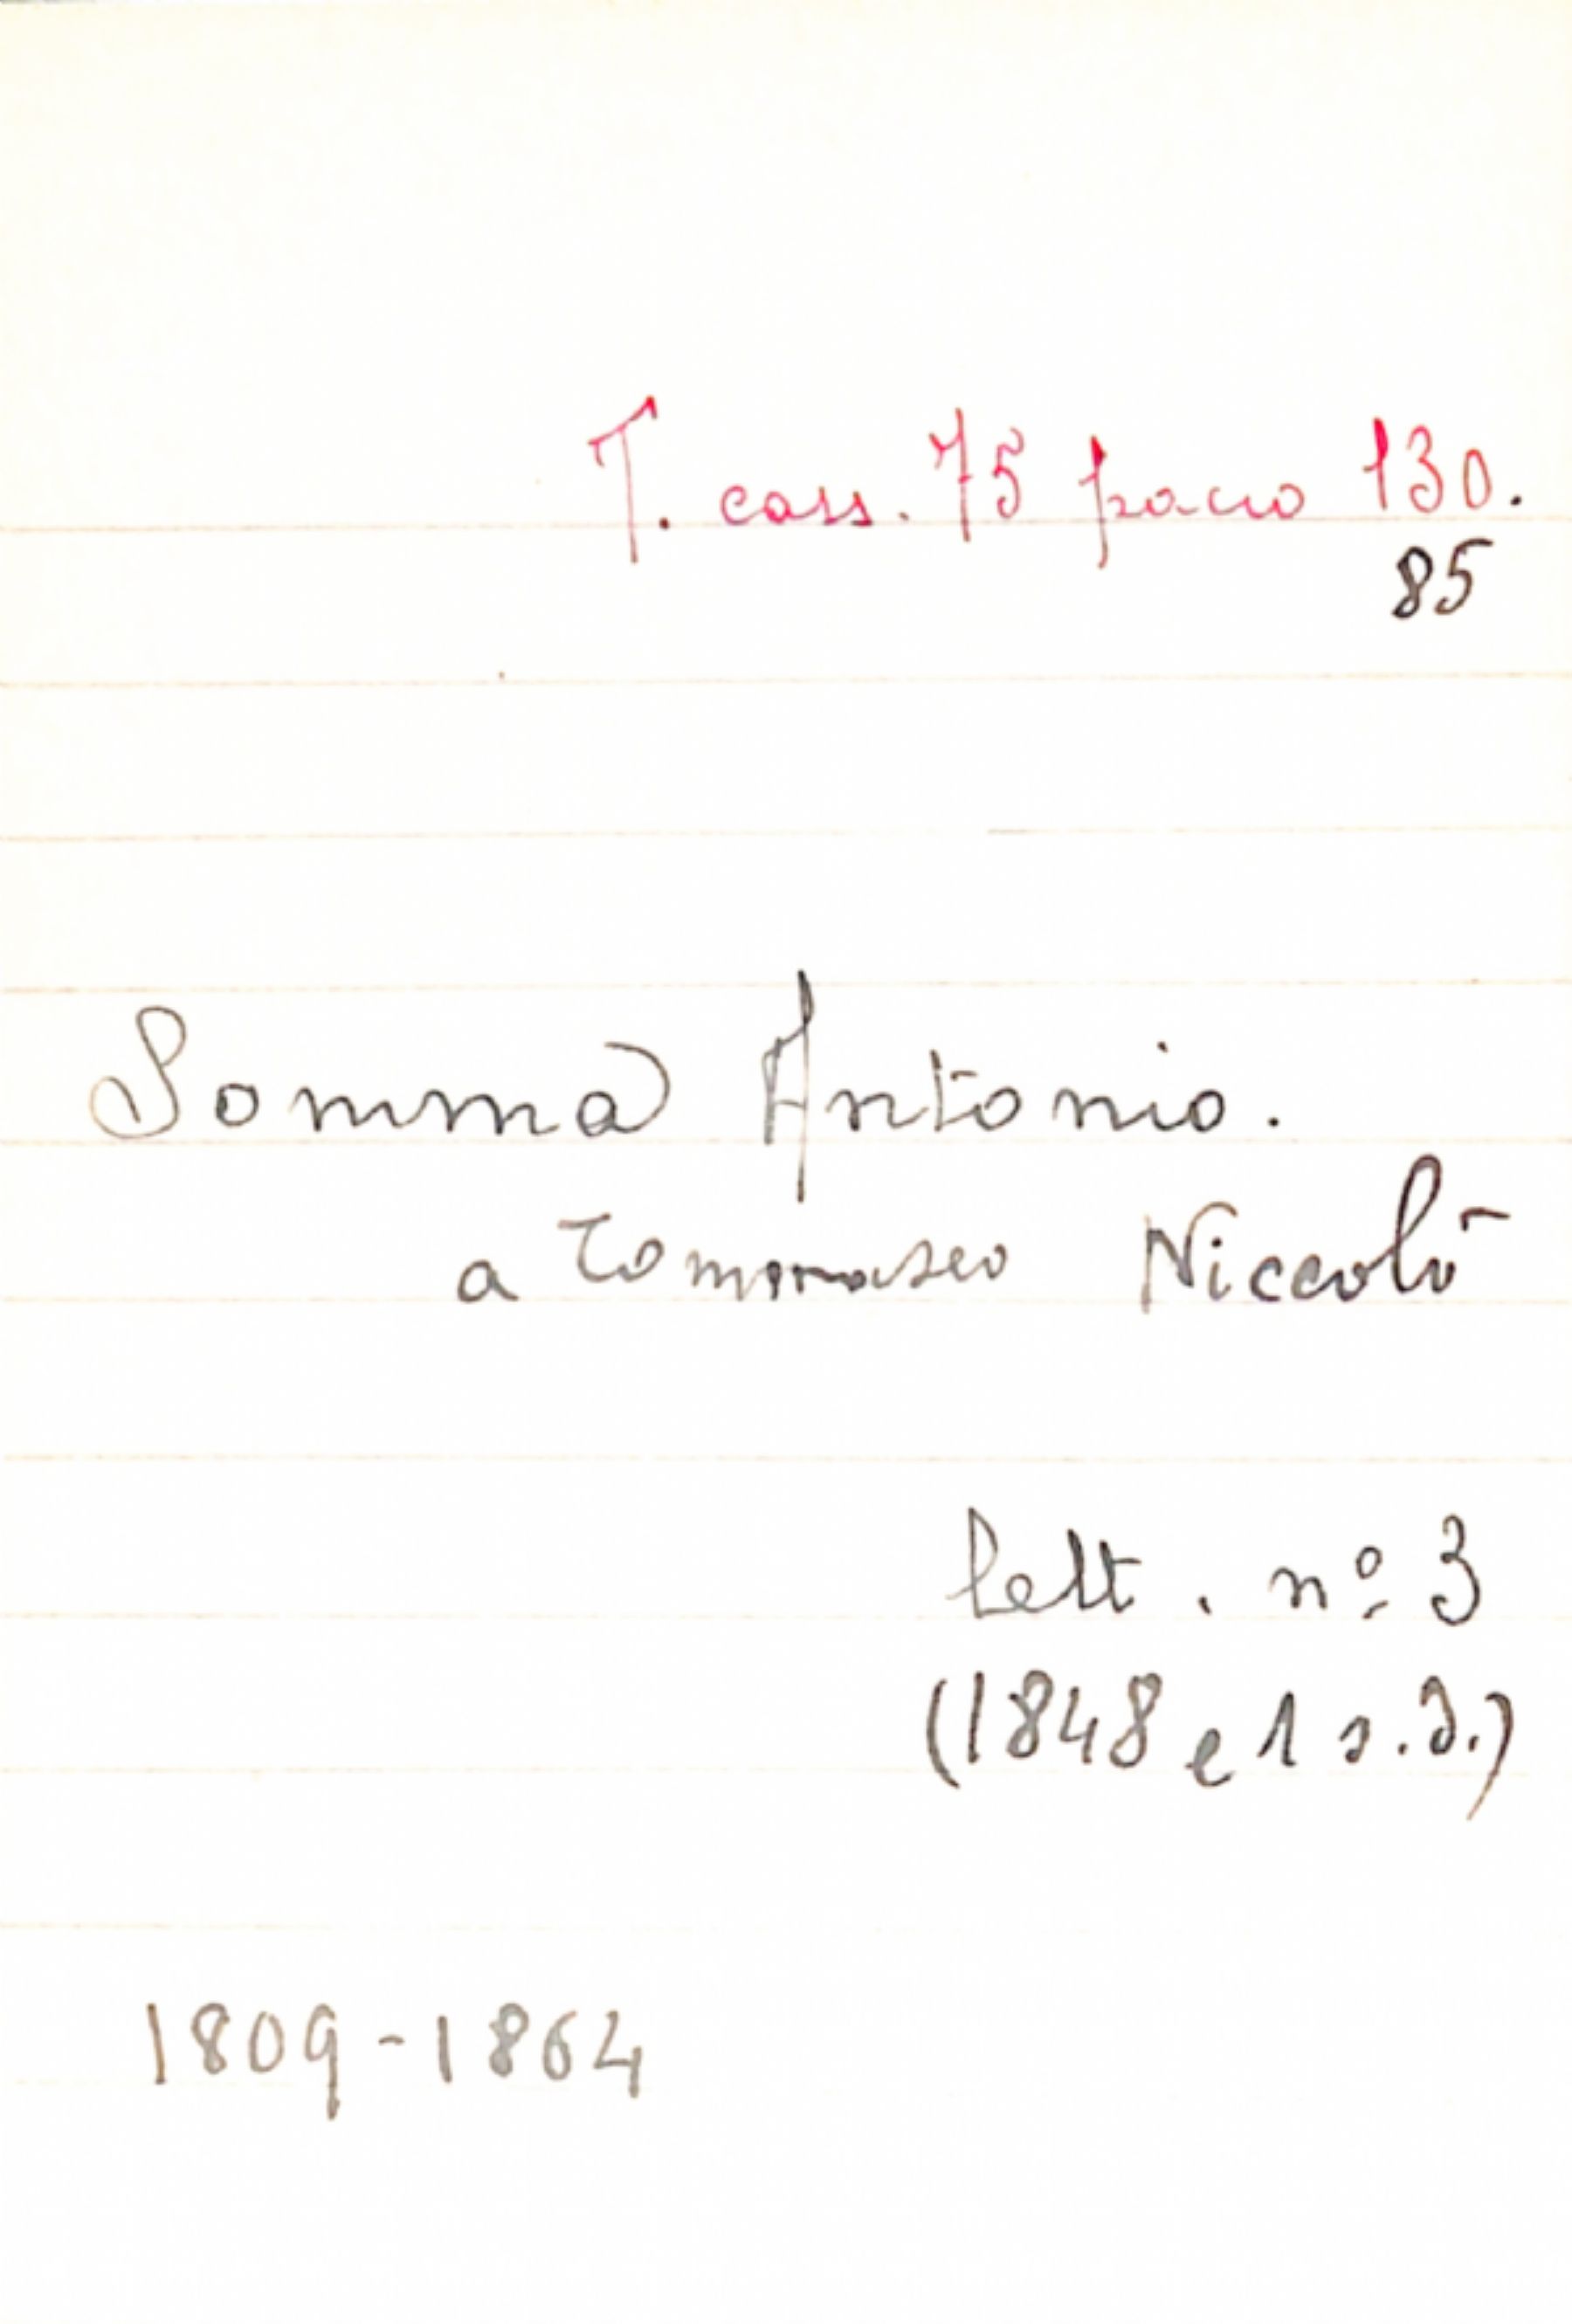 T. cass. 75 pacco 130.
85
Somma Antonio.
a Tommaseo Niccolò
lett. nº 3
(1848 e 1 s.d.)
1809-1864